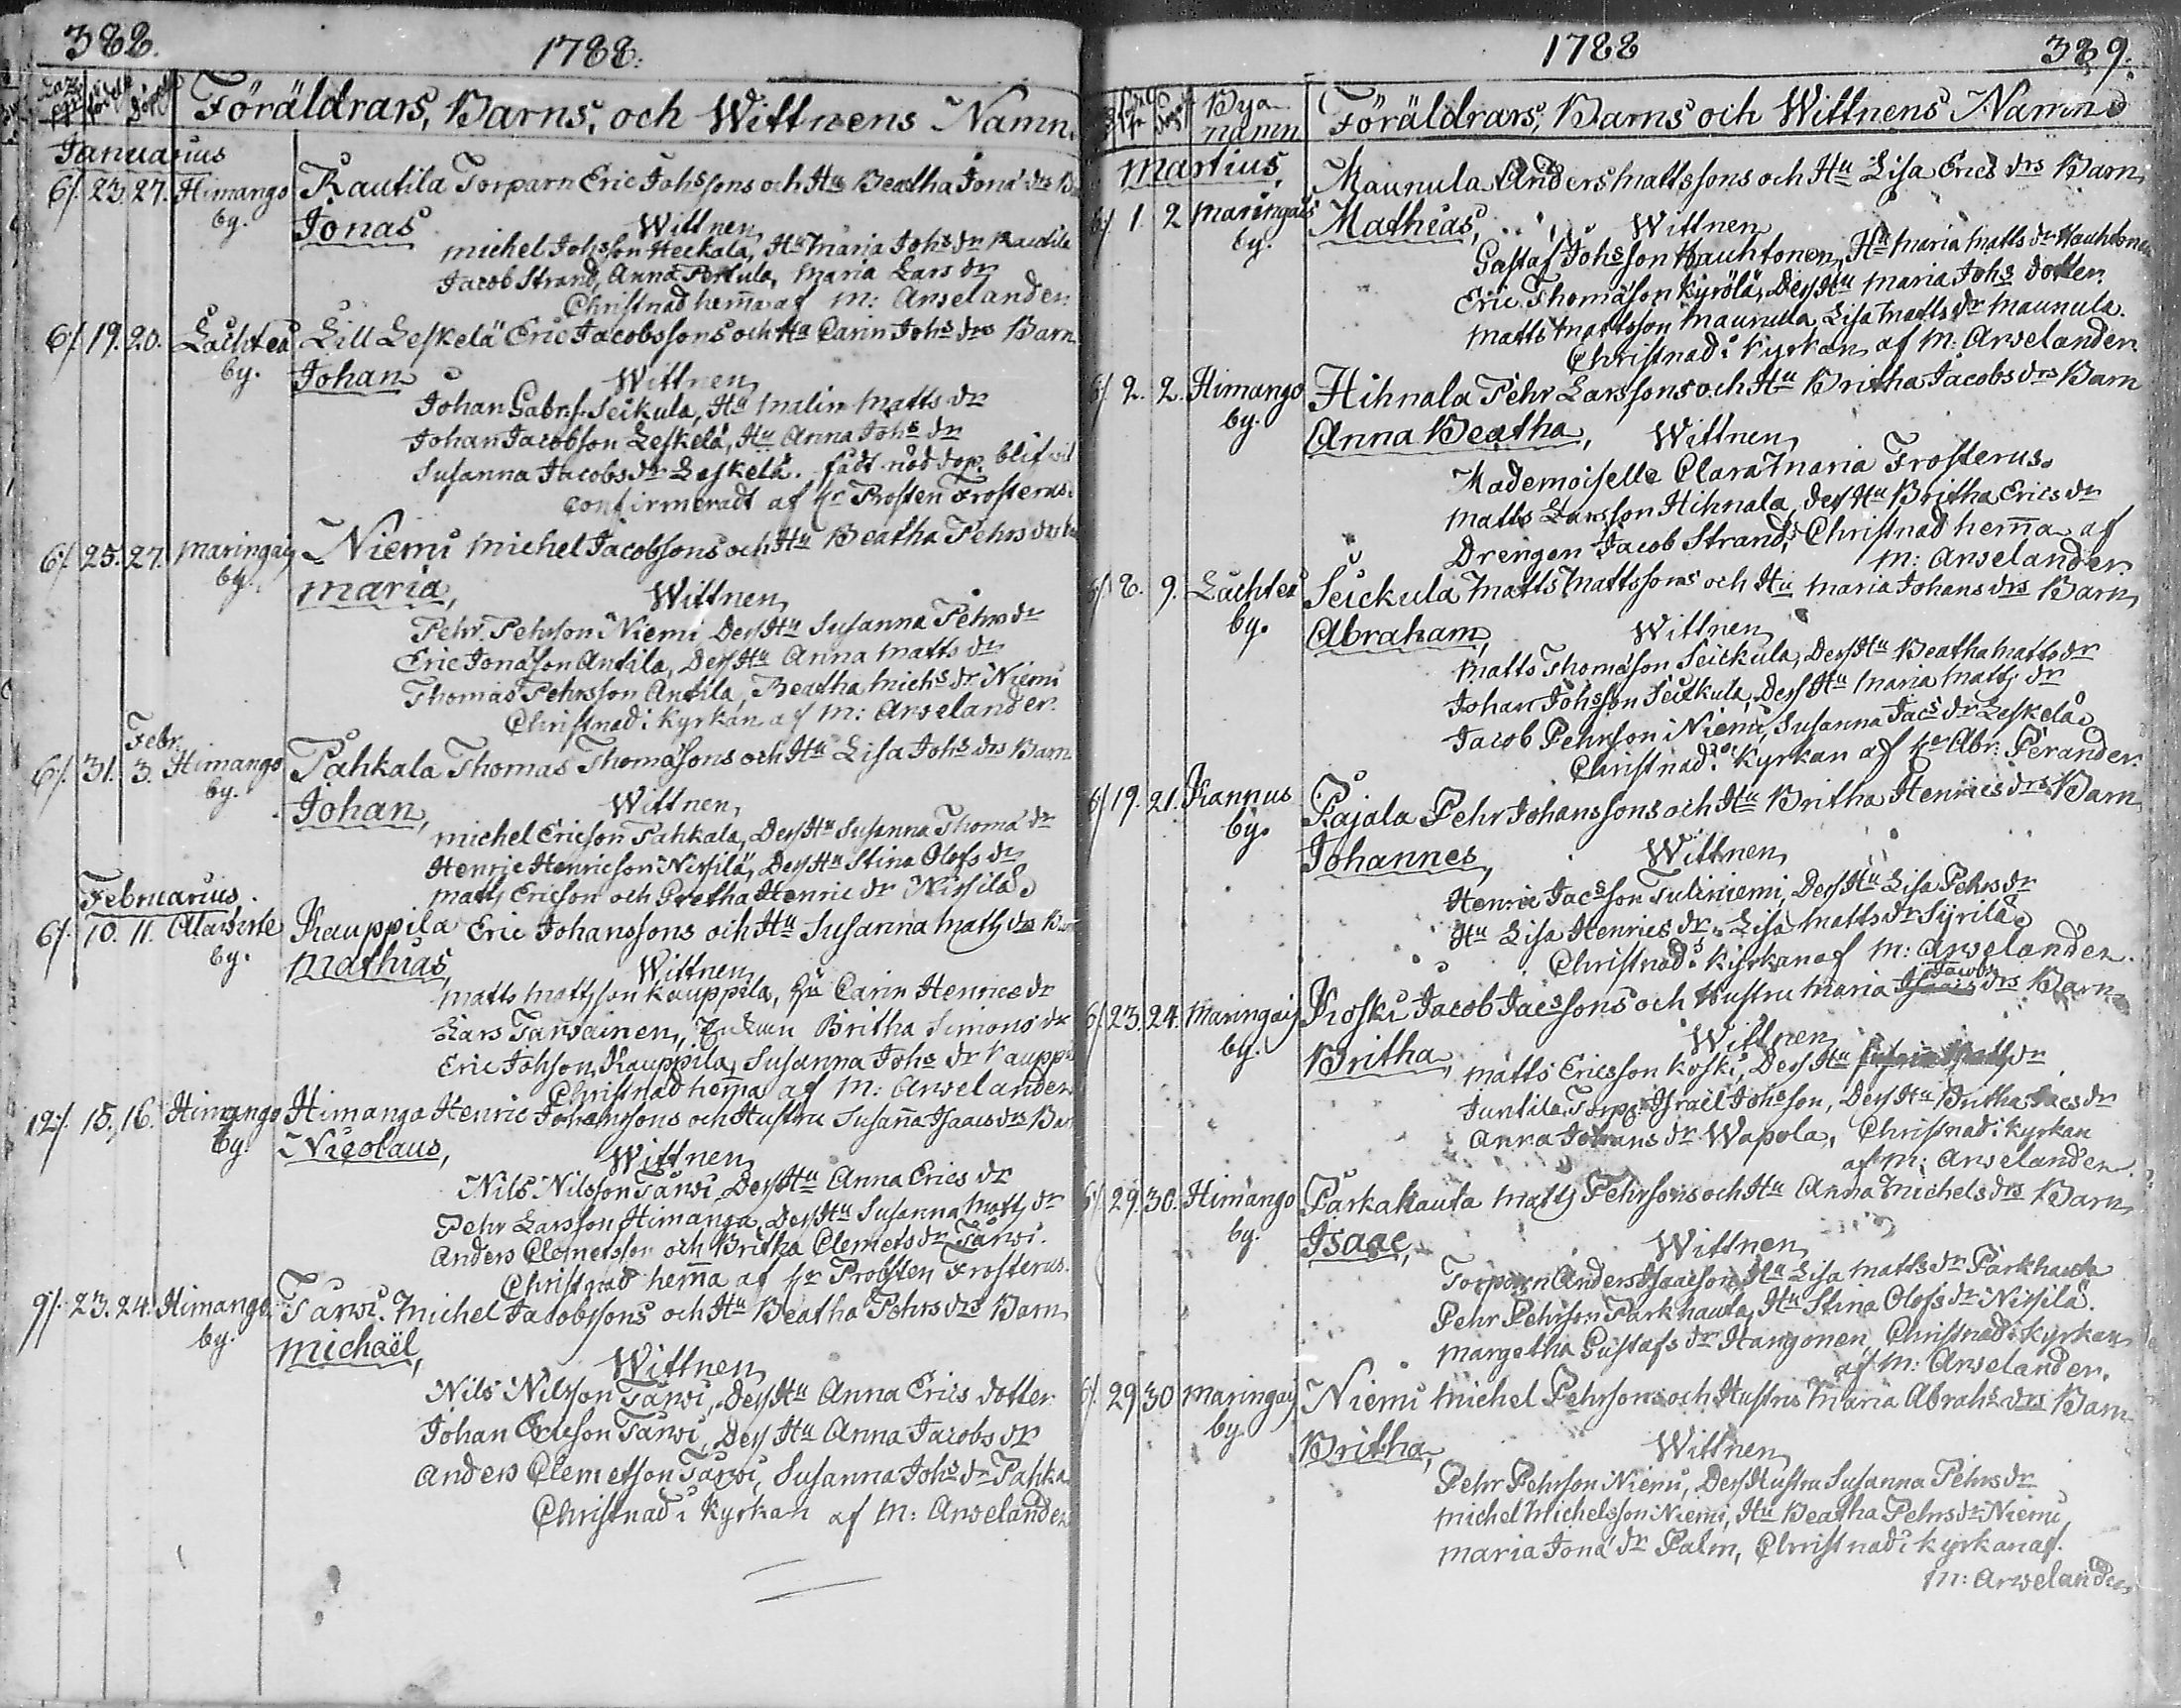 388.
1788.
födelse
Föräldrars, Barns, och Wittnens Namn.
Januarius
6/. 23. 27. Himango Rautila Torparn Eric Johssons och Hu Beatha Jona drs
by. Jonas Wittnen
Michel Johsson Heckala, Hu Maria Johs dr Rautila
Jacob Strand, Anna Pertula, Maria Lars dr
Christnad hem̅a af M: Arvelander.
6/. 19. 20. Lachtea Lill Leskelä Eric Jacobssons och Hu Carin Johs drs Barn
by. Johan Wittnen
Johan Gabr.s. Seikula, Hu Malin Matts dr
Johan Jacobsson Leskelä, Hu Anna Johs dr
Susanna Jacobs dr Leskelä. fådt nöd dop. blifvit
confirmeradt af Hr Prosten Frosterus.
6/. 25. 27. Maringais Niemi Michel Jacobssons och Hu Beatha Pehrs drs
by. Maria, Wittnen
Pehr Pehrson Niemi, Dess Hu Susanna Pehrs dr
Eric Jonasson Antila, Dess Hu Anna Matts dr
Thomas Pehrsson Antila, Beatha Michs dr Niemi
Christnad i Kyrkan af M: Arvelander.
Febr.
6/. 31. 3. Himango Pahkala Thomas Thomæsons och Hu Lisa Johs drs Barn
by. Johan, Wittnen,
Michel Ericson Pahkala, Dess Hu Susanna Thomæ dr
Henric Henricson Nissilä, Dess Hu Stina Olofs dr
Matts Ericson och Gretha Henric dr Nissilä
Februarius.
6/. 10. 11. Alavirte Kauppila Eric Johanssons och Hu Susanna Matts drs
by. Mathias, Wittnen
Matts Mattsson Kauppila, Hu Carin Henrics dr
Lars Tarvainen, Enkan Britha Simons dr
Eric Johsson Kauppila, Susanna Johs dr Kauppi
Christnad hem̅a af M: Arvelander
12/. 15. 16. Himango Himanga Henric Johanssons och Hustru Susan̅a Isaacs drs Bar
by. Nicolaus, Wittnen
Nils Nilsson Tarvi, Dess Hu Anna Erics dr
Pehr Larsson Himanga, Dess Hu Susanna Matts dr
Anders Clemetsson och Britha Clemets dr Tarvi.
Christnad hem̅a af Hr Probsten Frosterus.
9/. 23. 24. Himango Tarvi. Michel Jacobssons och Hu Beatha Pehrs drs Barn
by. Michaël, Wittnen
Nils Nilsson Tarvi, Dess Hu Anna Erics dotter
Johan Ericson Tarvi, Dess Hu Anna Jacobs dr
Anders Clemetson Tarvi, Susanna Johs dr Pahka
Christnad i Kyrkan af M: Arvelander
1788
389.
Bya
namn Föräldrars, Barns och Wittnens Namn
Martius, Maunula Anders Mattssons och Hu Lisa Erics drs Barn
6/ 1. 2 Maringais Mathias, Wittnen
by. Gustaf Johsson Hauhtonen, Hu Maria Matts dr Hauhtonen
Eric Thomæson Kyrölä, Dess Hu Maria Johs dotter.
Matts Mattsson Maunula, Lisa Matts dr Maunula.
Christnad i Kyrkan af M: Arvelander.
6/ 2. 2. Himango Hihnala Pehr Larssons och Hu Britha Jacobs drs Barn
by. Anna Beatha, Wittnen
Mademoiselle Clara Maria Frosterus.
Matts Larsson Hihnala, Dess Hu Britha Erics dr
Drengen Jacob Strand, Christnad hem̅a af
M: Arvelander.
6/ 8. 9. Lachtea Seickula Matts Mattssons och Hu Maria Johans drs Barn
by. Abraham, Wittnen
Matts Thomæson Seickula, Dess Hu Beatha Matts dr
Johan Johsson Seickula, Dess Hu Maria Matts dr
Jacob Pehrson Niemi, Susanna Jacs dr Leskelä
Christnad i Kyrkan af Hr Abr: Perander.
6/ 19. 21. Kannus Pajala Pehr Johanssons och Hu Britha Henrics drs Barn
by. Johannes, Wittnen
Henric Jacsson Tuliniemi, Dess Hu Lisa Pehrs dr
Hu Lisa Henrics dr. Lisa Matts dr Syrilä
Christnad i Kyrkan af M: Arvelander.
6/ 23. 24. Maringais Koski Jacob Jacssons och Hustru Maria Jacobs drs Barn
by. Britha, Wittnen
Matts Ericsson Koski, Dess Hu
Juntila Torp. Israel Johsson, Dess Hu Britha Jacs dr
Anna Johans dr Wapola, Christnad i Kyrkan
af M: Arvelander.
6/ 29. 30. Himango Parkahauta Matts Pehrsons och Hu Anna Michels drs Barn
by. Isaac, Wittnen
Torparn Anders Isaacson, Hu Lisa Matts dr Parkhauta
Pehr Pehrson Parkhauta, Hu Stina Olofs dr Nissilä.
Margetha Gustafs dr Hangonen, Christnad i Kyrkan
af M: Arvelander.
6/. 29 30 Maringais Niemi Michel Pehrsons och Hustrus Maria Abrahs drs Barn
by. Britha, Wittnen
Pehr Pehrson Niemi, Dess Hustru Susanna Pehrs dr
Michel Michelsson Niemi, Hu Beatha Pehrs dr Niemi
Maria Jona dr Palm, Christnad i Kyrkan af.
M: Arvelander